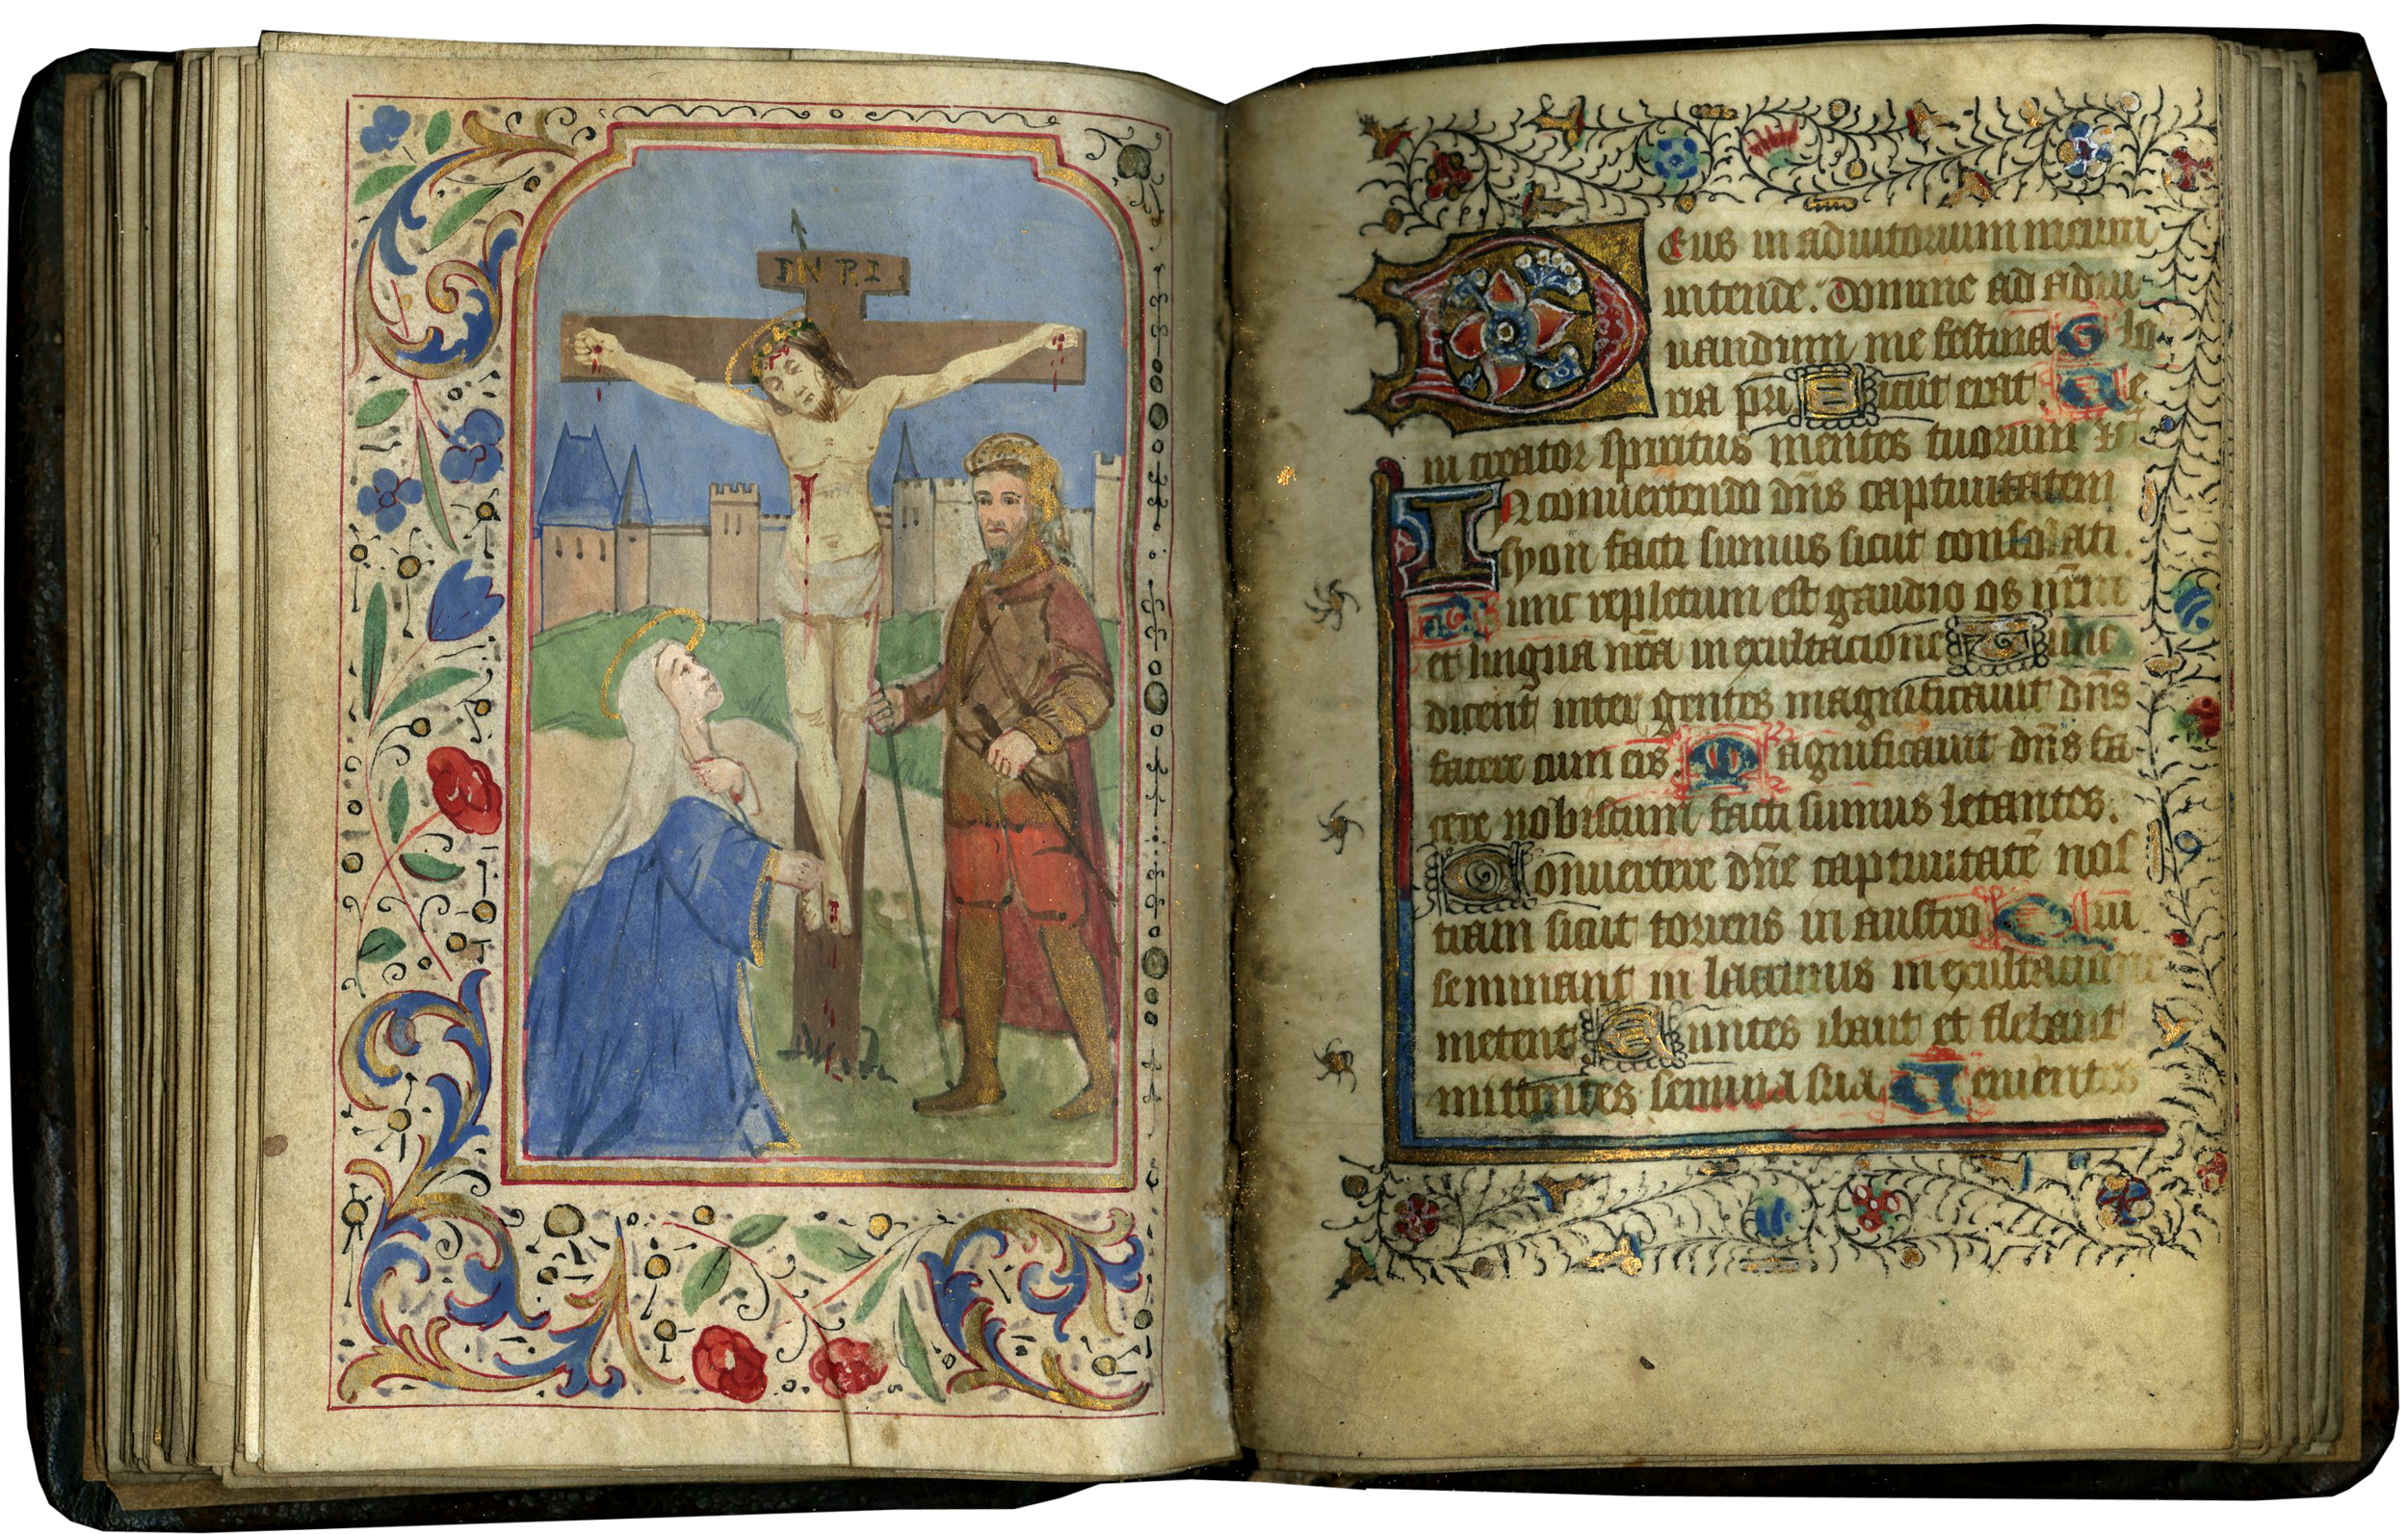 INRI
Deus in adiutorium meum
intende. Domine ad adiu-
uandum me festina Glo-
ria pri Sicut erat. Ve
ni creator spiritus mentes tuorum v
In conuertendo dn̄s captiuitatem
syon facti sumus sicut consolati.
Tunc repletum est gaudio os nr̄m
et lingua nr̄a in exultacione Tunc
dicent inter gentes magnificauit dn̄s
facere cum eis. Magnificauit dn̄s fa-
cere nobiscum facti sumus letantes.
Conuertere dn̄e captiuitatē nos
tram sicut torrens in austro Qui
seminant in lacrimis in exultacione
metent Euntes ibant et flebant
mittentes semina sua Uenientes